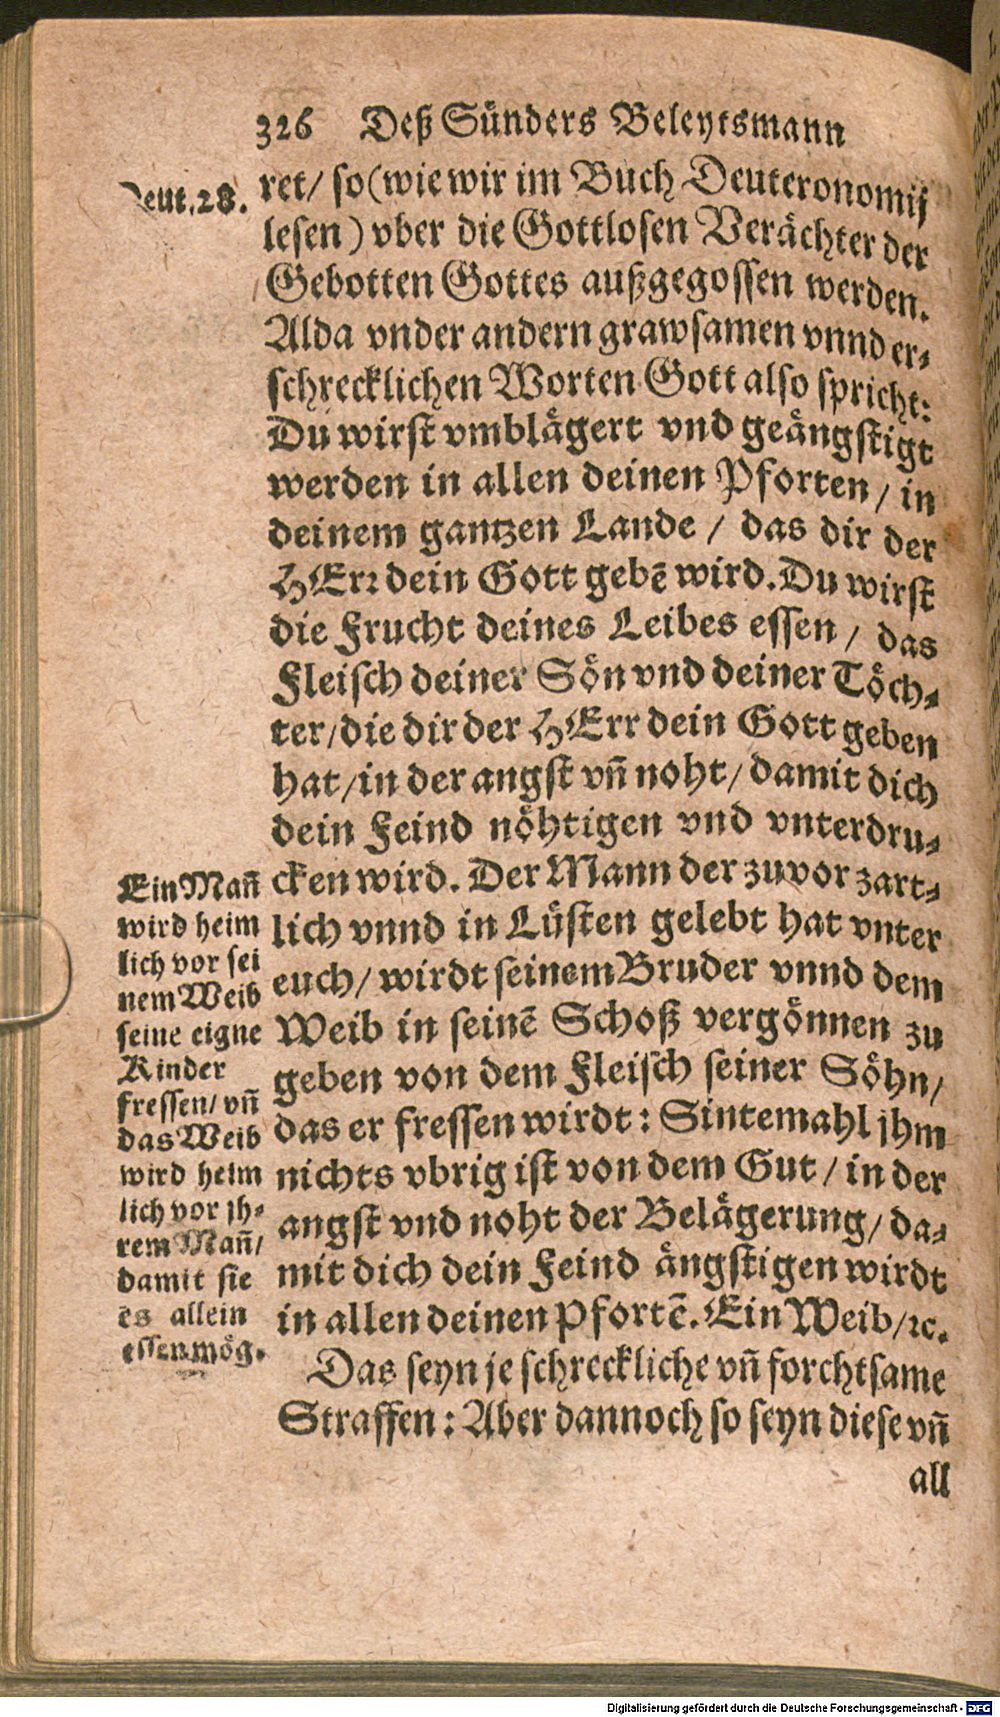 326 Deß Sünders Beleytsmann
Deut.28.
ret/ so (wie wir im Buch Deuteronomij
lesen) vber die Gottlosen Verächter der
Gebotten Gottes außgegossen werden.
Alda vnder andern grawsamen vnnd er-
schrecklichen Worten Gott also spricht:
Du wirst vmblägert vnd geängstigt
werden in allen deinen Pforten / in
deinem gantzen Lande / das dir der
HErr dein Gott gebē wird. Du wirst
die Frucht deines Leibes essen / das
Fleisch deiner Sön vnd deiner Töch-
ter/die dir der HErr dein Gott geben
hat/in der angst vñ noht/damit dich
dein Feind nöhtigen vnd vnterdru-
cken wird. Der Mann der zuvor zart-
lich vnnd in Lüsten gelebt hat vnter
euch/ wirdt seinem Bruder vnnd dem
Weib in seinē Schoß vergönnen zu
geben von dem Fleisch seiner Söhn/
das er fressen wirdt: Sintemahl jhm
nichts vbrig ist von dem Gut / in der
angst vnd noht der Belägerung/ da-
mit dich dein Feind ängstigen wirdt
in allen deinen Pfortē. Ein Weib/ꝛc.
Das seyn je schreckliche vñ forchtsame
Straffen: Aber dannoch so seyn diese vñ
all
Ein Mañ
wird heim
lich vor sei
nem Weib
seine eigne
Kinder
fressen/ vñ
das Weib
wird heim
lich vor jh-
rem Mañ/
damit sie
es allein
essen mög.
Digitalisierung gefördert durch die Deutsche Forschungsgemeinschaft - DFG